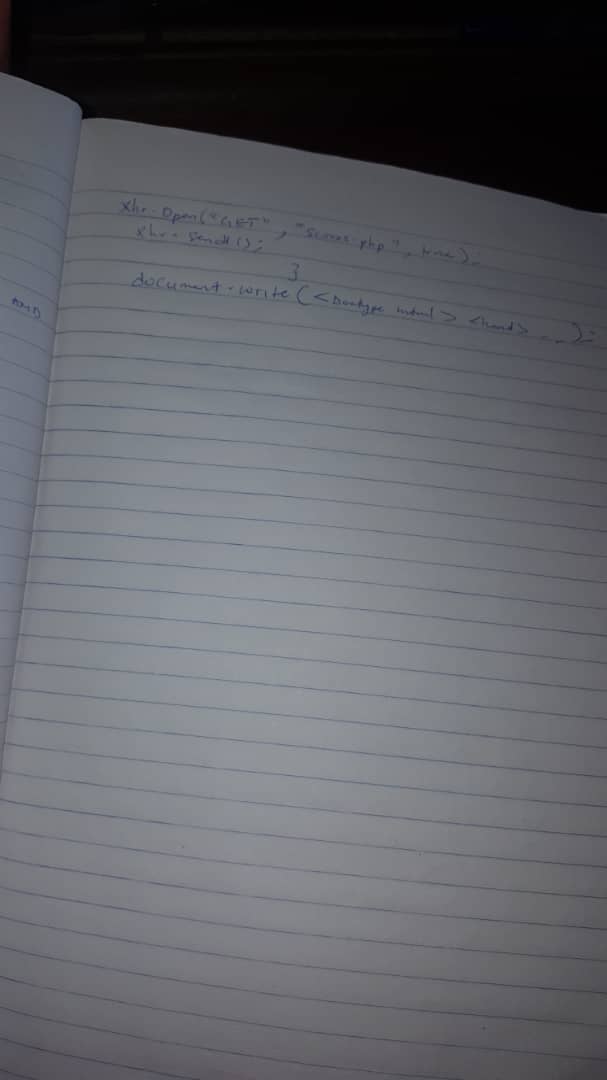 xhr.Open("GET", " .php", true);
xhr.send();
}
document.write(<Doctype html> <head> -- );